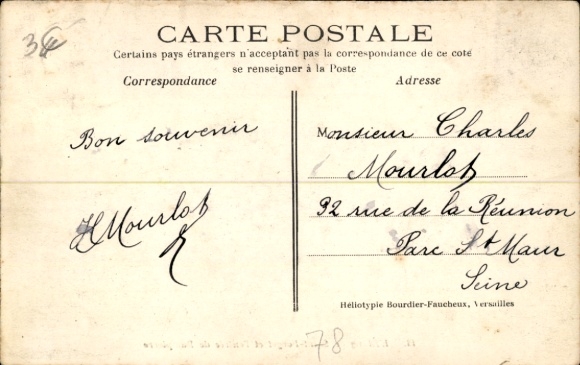 CARTE POSTALE
Certains pays étrangers n'acceptent pas la correspondance de ce coté
se renseigner à la Poste
Correspondance
Adresse
Bon souvenir
HMourlot
Monsieur Charles
Mourlot
92 rue de la Réunion
Parc St Maur
Seine
Héliotypie Bourdier-Faucheux, Versailles
78